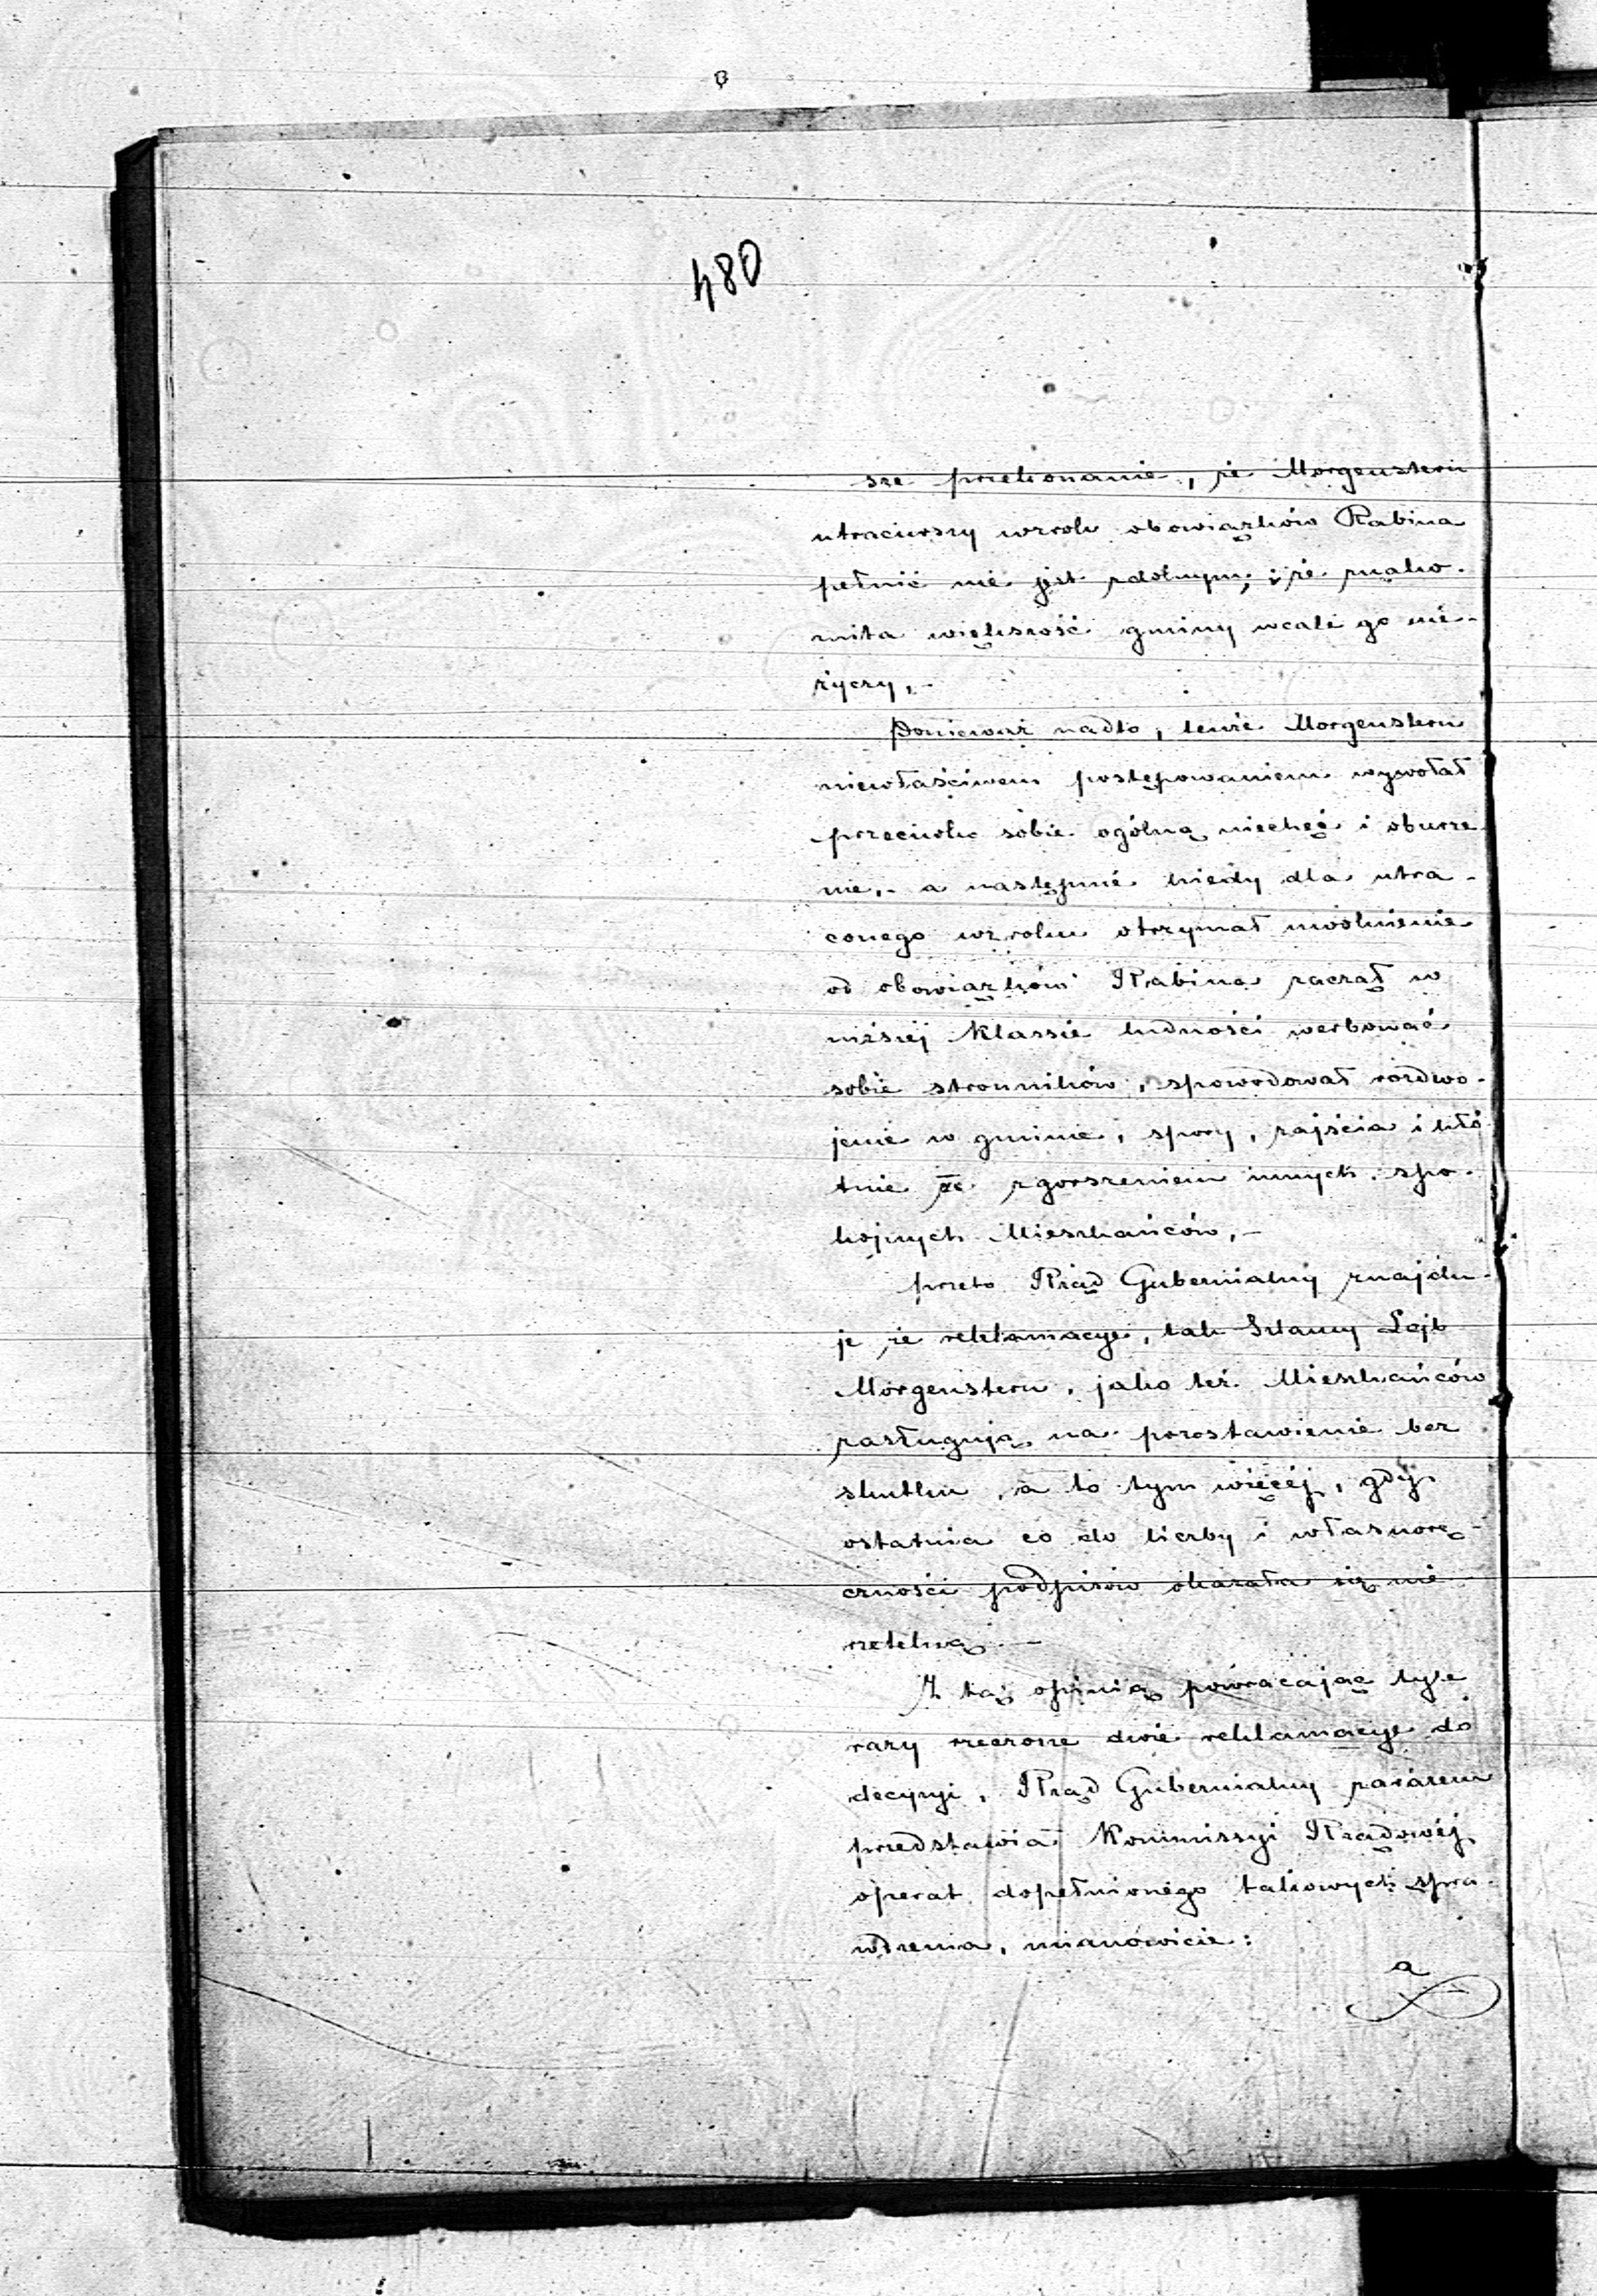 480
sze przekonanie, że Morgenstern
utraciwszy wzrok obowiązków Rabina
pełnić nie jest zdolnym, i że znako-
mita większość gminy wcale go nie-
życzy,-
Ponieważ nadto, tenże Morgenstern
niewłaściwem postępowaniem wywołał
przeciwko sobie ogólną niechęć i oburze
nie,- a następnie kiedy dla utra-
conego wzroku otrzymał uwolnienie
od obowiązków Rabina zaczął w
niższej Klassie ludności werbować
sobie stronników, spowodował rozdwo-
jenie w gminie, spory, zajścia i kłó
tnie ze zgorszeniem innych spo-
kojnych Mieszkańców,-
przeto Rząd Gubernialny znajdu-
je że reklamacye, tak Szlamy Lejb
Morgenstern, jako też Mieszkańców
zasługują na pozostawienie bez
skutku, a to tym więcéj, gdy
ostatnia co do liczby i własnorę-
czności podpisów okazała się nie
rzetelną. —
Z tą opinią powracając tyle
razy rzeczone dwie reklamacye do
decyzyi, Rząd Gubernialny zarazem
przedstawia Kommissyi Rządowéj
operat dopełnionego takowych spra-
wdzenia, mianowicie:
a